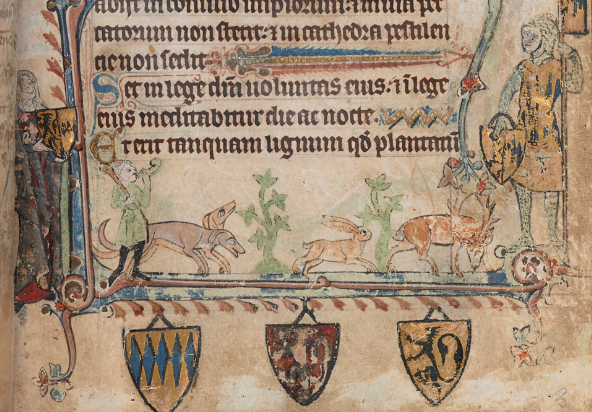 abijt in consilio impiorum: ⁊ in uia pec
catorum non stetit: ⁊ in cathedra pestilen
cie non sedit
Set in lege dn̄i uoluntas eius: ⁊ ī lege
eius meditabitur die ac nocte.
Et erit tanquam lignum qd̄ plantatū